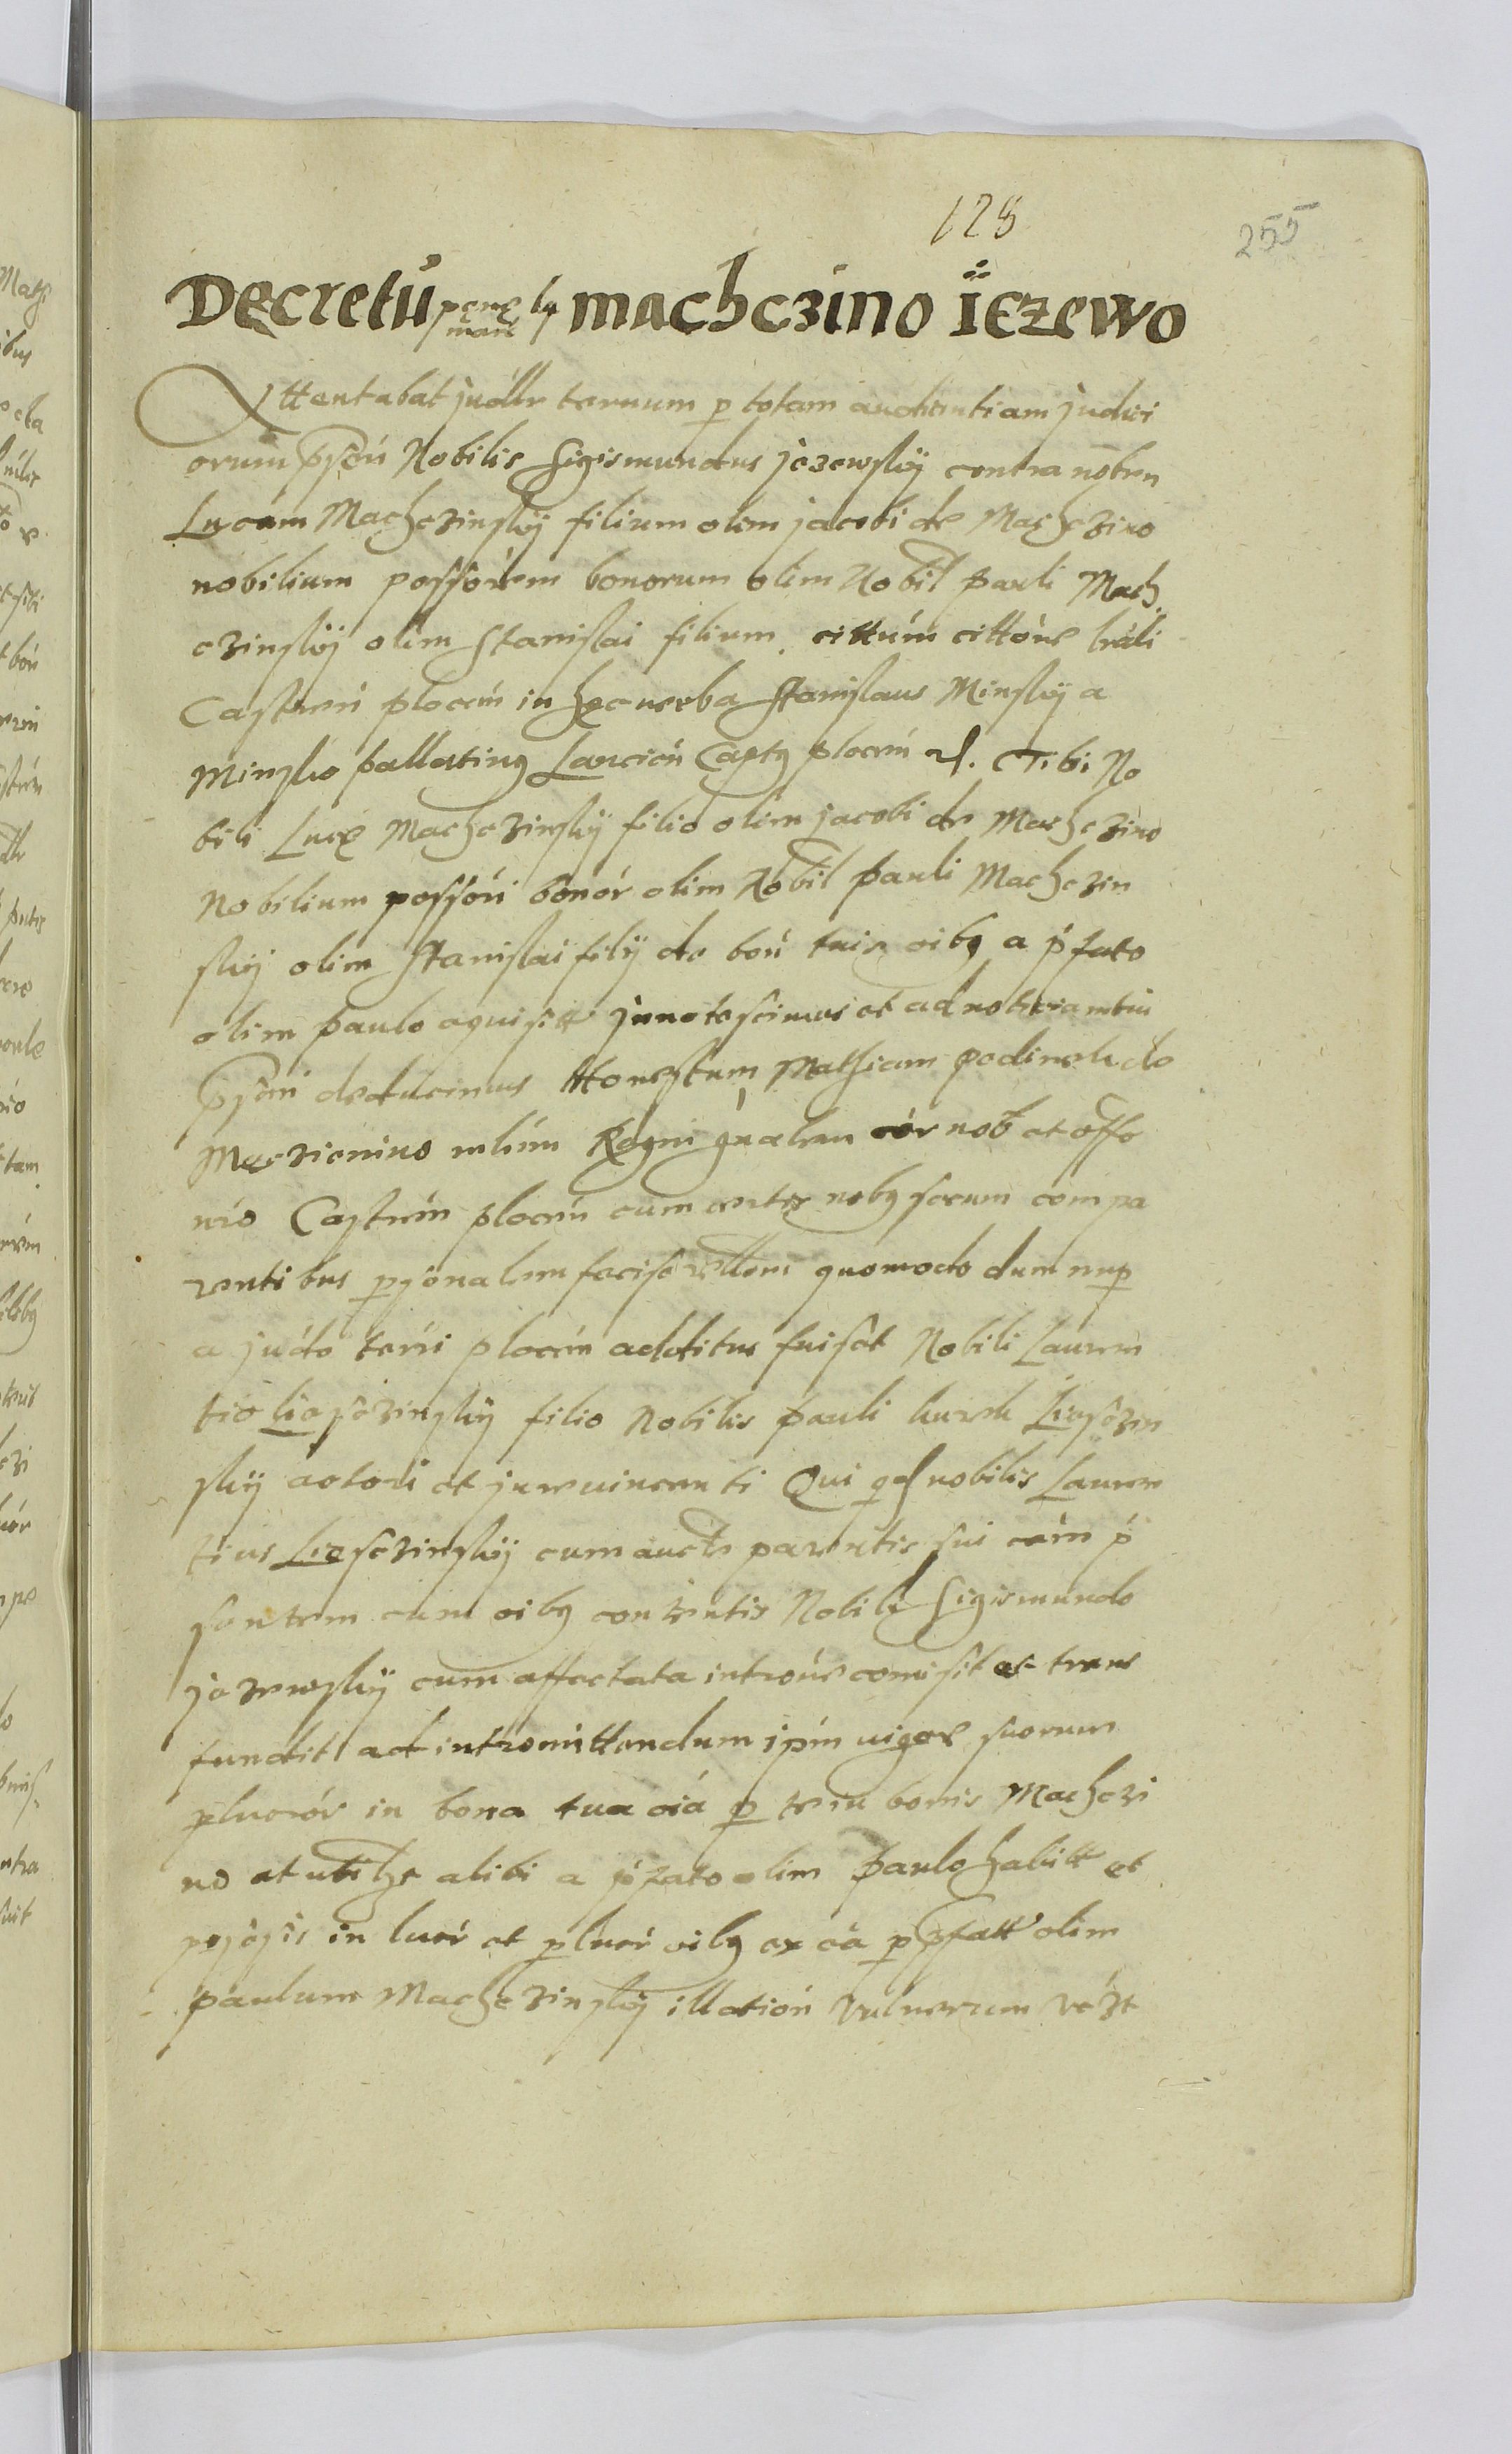 128
255
Decretú pene ly machczino ïezewo
mare
Attentabat judllr ternum p totam audientiam judici
orum pńsen Nobilis Sigismundus jezewskÿ contra noben
Lucam Machczinskÿ filium olim jacobi de Machczino
nobilium possórem bonorum olim Nobil pauli Mach
czinskÿ olim Stanislai filium. cittúm cittóne lráli
Castren plocen in hec verba Stanislaus Minskÿ a
Minsko pallating Lancicn Capts plocen Tibi No
bili Luce Machczinskÿ filio olim jacobi de Machczino
Nobilium possóri bonór olim Nobil pauli Machczin
skÿ olim Stanislai filÿ de bon tuis oibg a pfato
olim paulo aquisitt Innotescimus et ad notieiam tui
pńsen deducimus Honestum Mathiam podinek de
Macziemino mlúm Regni gnalem cór nob et offo
nro Castren plocen cum certis nobg secum compa
rentibus psonalem fecise rellom quomodo dum nup
a judo terri plocen additus fuiset Nobili Lauren
tio Lieschzinskÿ filio Nobilis pauli kurek Lieschzin
skÿ actori et jurevincenti Qui qd nobilis Lauren
tius Liesczinskÿ cum aucte parentis sui cám p
sentem cum oibg contentis Nobili Sigismundo
jezewskÿ cum affectata intróne comisit et trans
fundit ad intromittendum ipm vigore suorum
pluccór in bona tua oiá p te in bonis Machczi
no et ubilze alibi a pfato olim paulo habitt et
posesis in lucr et plucr oibg ex cá p pfatt olim
paulum Machczinskÿ illation vulnerum